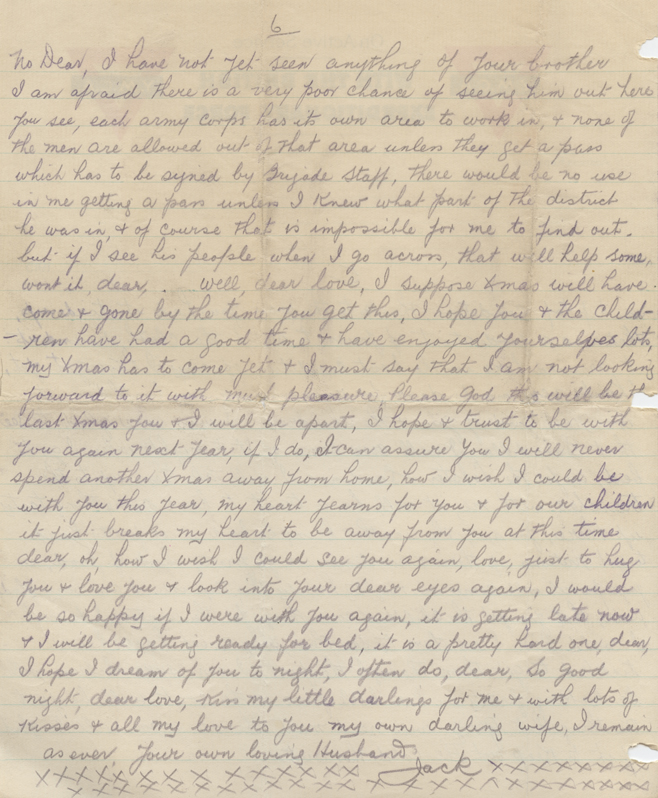 6
No Dear, I have not yet seen anything of your brother
I am afraid there is a very poor chance of seeing him out here
you see, each army corps has its own area to work in, & none of
the men are allowed out of that area unless they get a pass
which has to be signed by Brigade Staff, there would be no use
in me getting a pass unless I knew what part of the district
he was in, & of course that is impossible for me to find out.
but if I see his people when I go across, that will help some,
wont it, dear, . well, dear love, I suppose Xmas will have
come & gone by the time you get this, I hope you & the child-
- ren have had a good time & have enjoyed yourselves lots,
my Xmas has to come yet & I must say that I am not looking
forward to it with much pleasure, Please God this will be the
last Xmas you & I will be apart, I hope & trust to be with
you again next year, if I do, I can assure you I will never
spend another Xmas away from home, how I wish I could be
with you this year, my heart yearns for you & for our children
it just breaks my heart to be away from you at this time
dear, oh, how I wish I could see you again, love, just to hug
you & love you & look into your dear eyes again, I would
be so happy if I were with you again, it is getting late now
& I will be getting ready for bed, it is a pretty hard one, dear,
I hope I dream of you to night, I often do, dear, So good
night, dear love, Kiss my little darlings for me & with lots of
Kisses & all my love to you my own darling wife, I remain
as ever, Your own loving Husband
Jack x x x x x x x x x x x
x x x x x x x x x x x x x x x x x x x x
x x x x x x x x x x x x x x x x x x x x x x x x x x